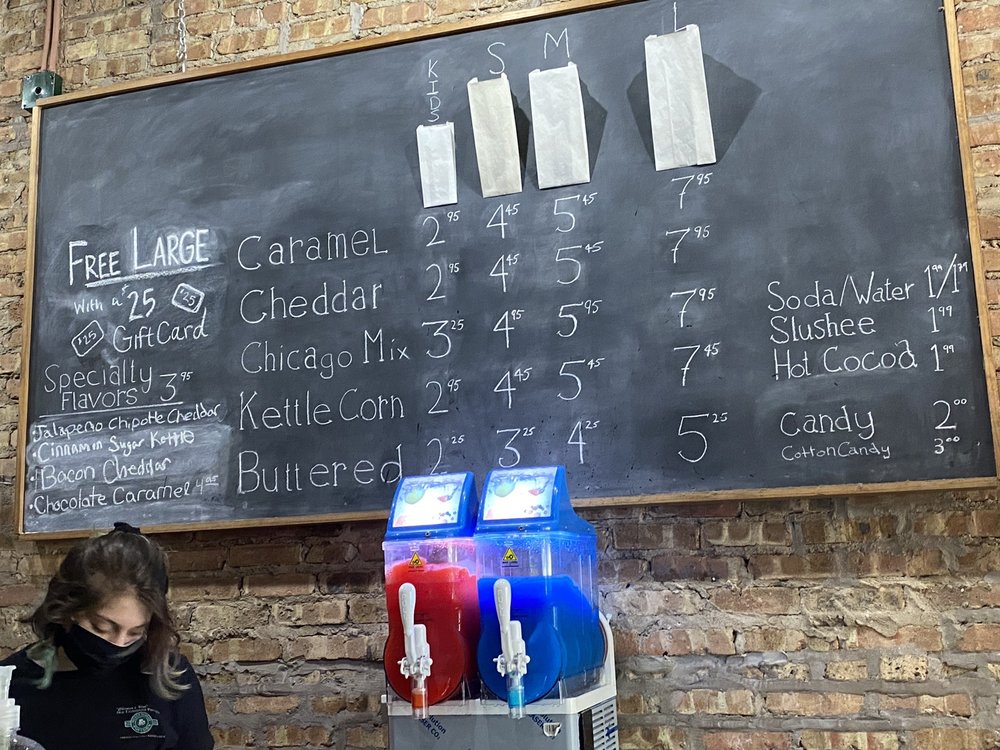 KIDS S M L
FREE LARGE
With a $25 $25
$25 Gift Card
Specialty
Flavors 3.95
• Jalapeno Chipotle Cheddar
• Cinnamin Sugar Kettle
• Bacon Cheddar
• Chocolate Caramel 4.95
Caramel 2.95 4.45 5.45 7.95
Cheddar 2.95 4.45 5.45 7.95
Chicago Mix 3.25 4.95 5.95 7.95
Kettle Corn 2.95 4.45 5.45 7.45
Buttered 2.25 3.25 4.25 5.25
Soda/Water 1.99/1.79
Slushee 1.99
Hot Cocoa 1.99
Candy 2.00
Cotton Candy 3.00